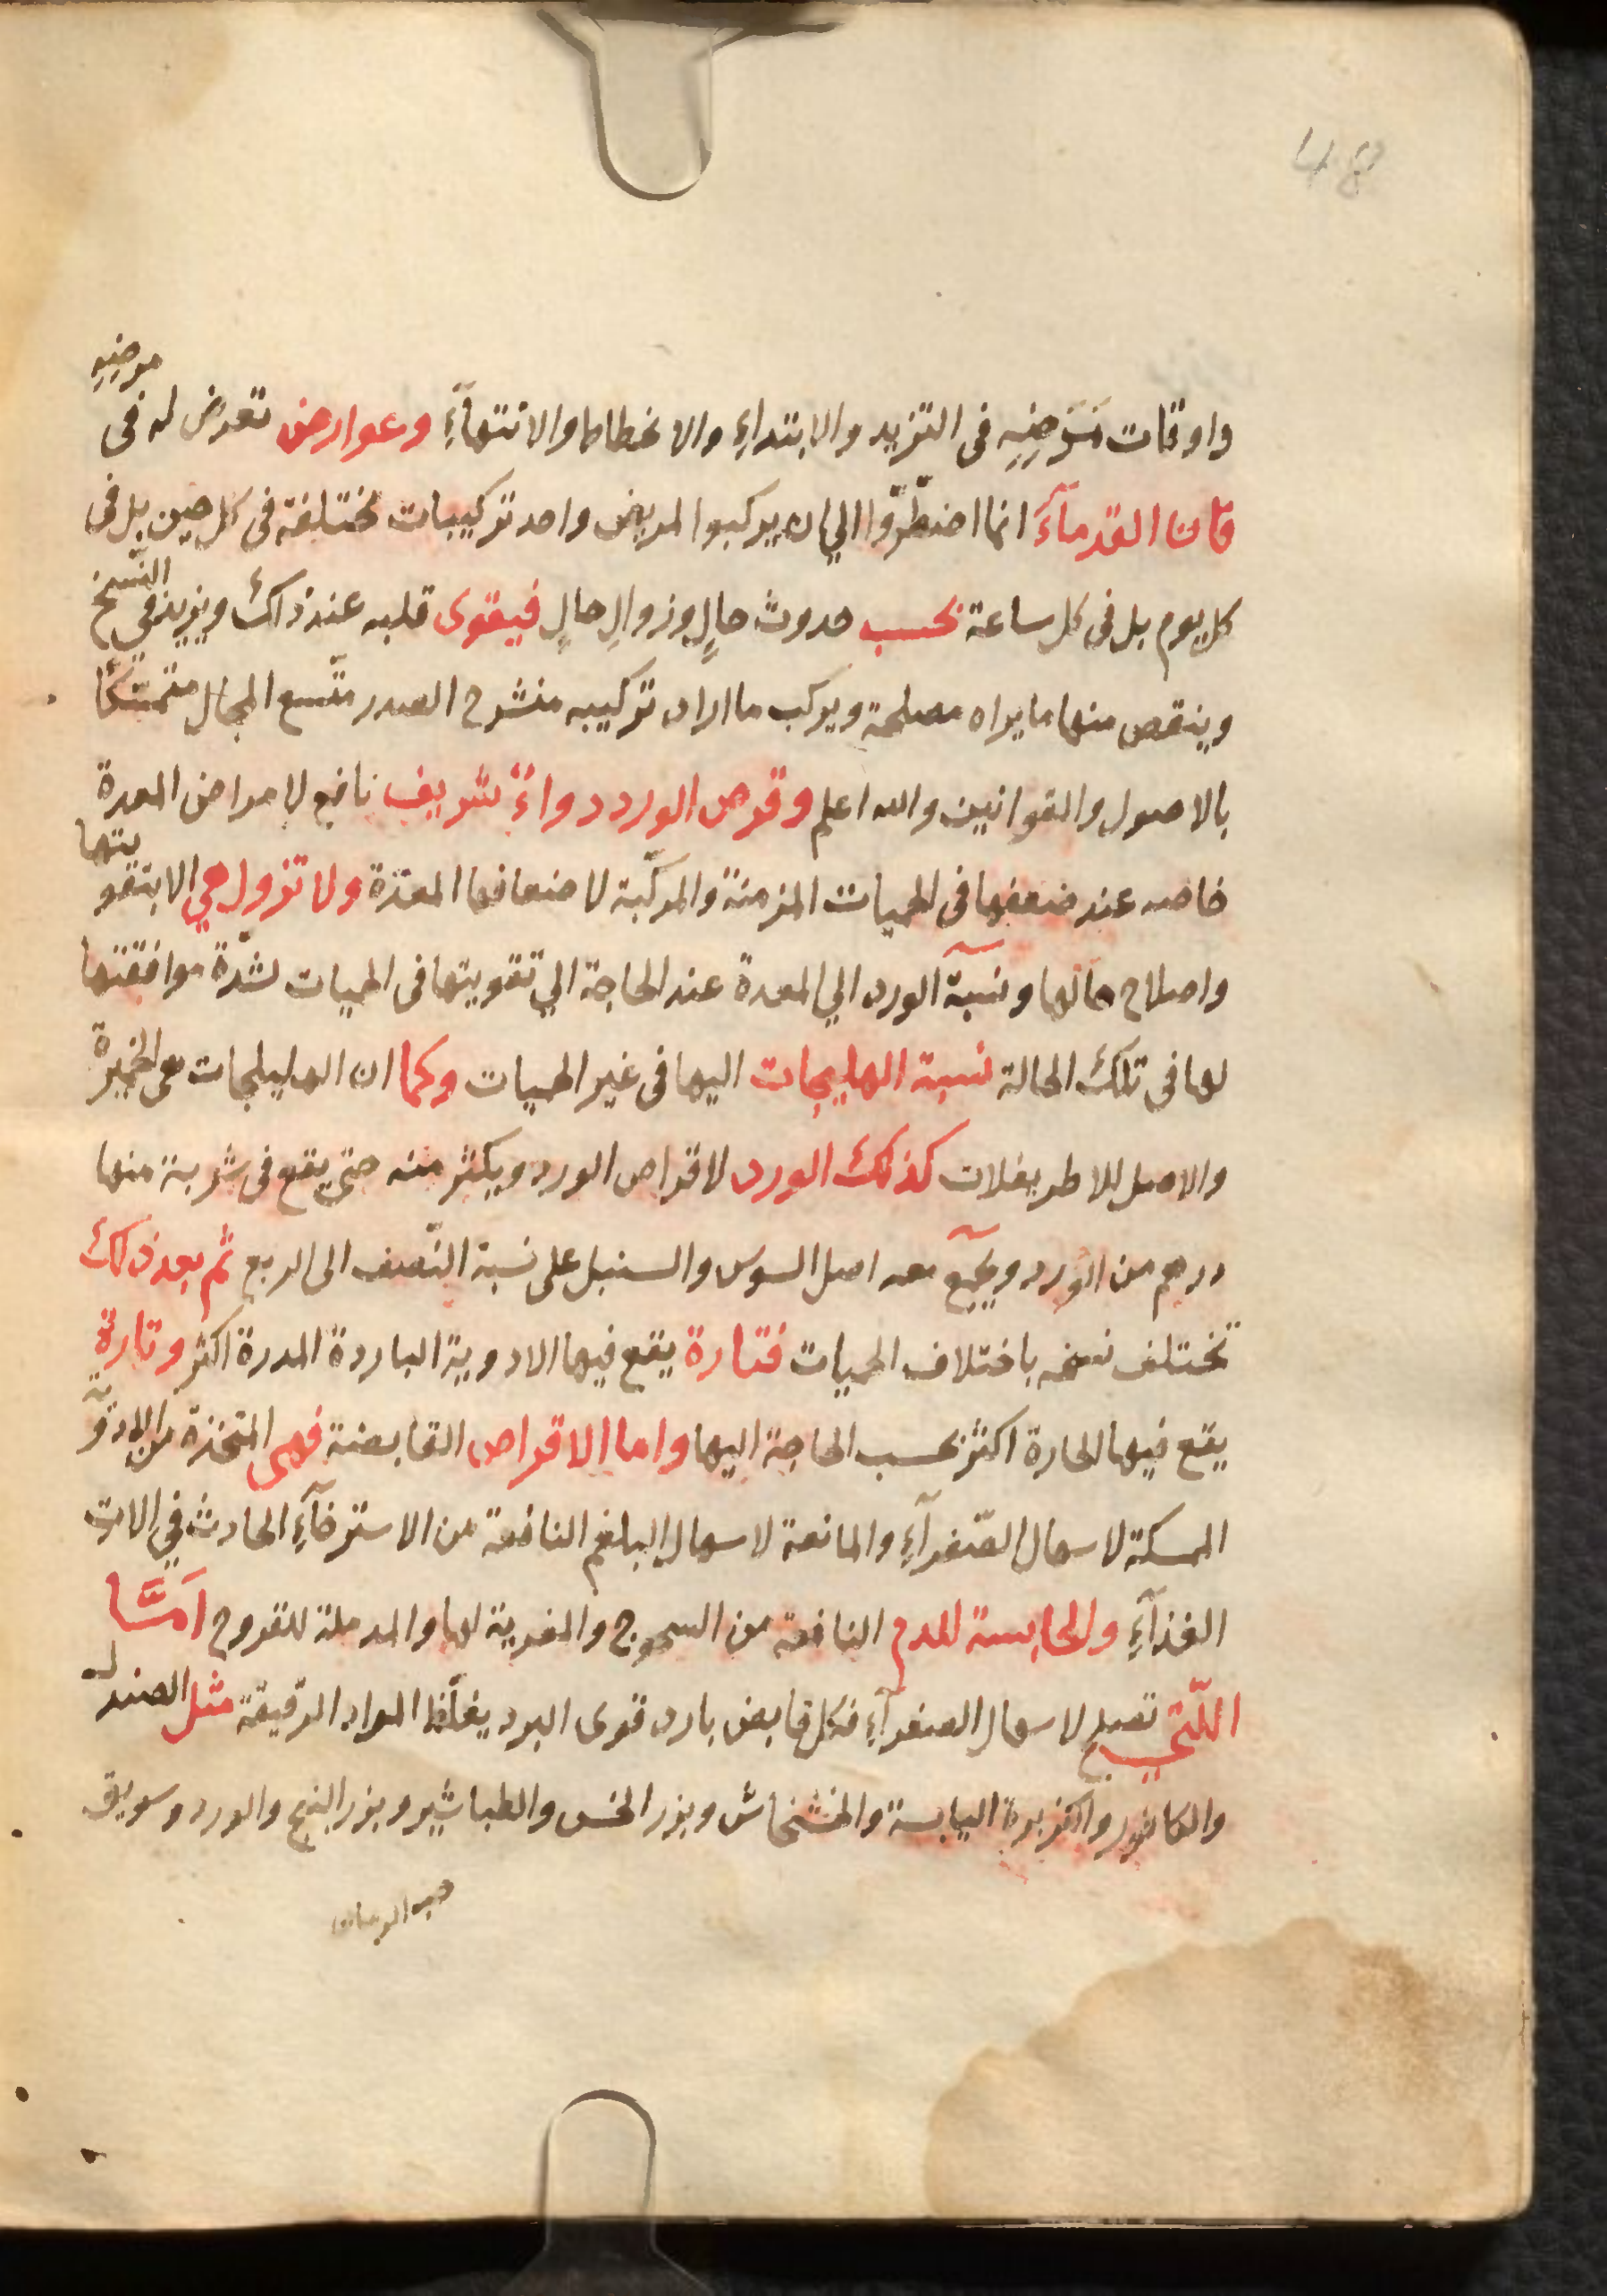 48
واوقات مَرَضِهِ فى التزيد والابتداءِ والانحطاط والانتهآءِ وعوارض تعرض له فى مرضِهِ
فان القدمآءَ انما اضطرّوا الي ان يركبوا المريض واحد تركيبات مختلفة فى كل حين بل فى
كل يوم بل فى كل ساعة بحسب حدوث حالٍ وزوالِ حالٍ فيقوى قلبه عند ذاك ويزيد في النّسخ
وينقص منها ما يراه مصلحة ويركب ما اراد تركيبه منشرح الصدر متّسع المجال متمسّكًا
بالاصول والقوانين والله اعلم وقرص الورد دواءٌ شريف نافع لامراض المعدة
خاصه عند ضعفها فى الحميات المزمنة والمركّبة لاضعافها المعدة ولا تزول هي الا بتقويتها
واصلاح حالها ونسبة الورد الي المعدة عند الحاجة الي تقويتها فى الحميات لشدّة موافقتها
لها فى تلك الحالة نسبة الهليجات اليها فى غير الحميات وكما ان الهليلجات هى الخميرة
والاصل للاطريفلات كذلك الورد لاقراص الورد ويكثر منه حتى يقع فى شربة منها
درهم من الورد ويجمع معه اصل السوس والسنبل على نسبة النّصف الى الربع ثم بعد ذلك
تختلف نسخه باختلاف الحميات فتارة يقع فيها الادوية الباردة المدرة اكثر وتارة
يقع فيها الحارة اكثر بحسب الحاجة اليها واما الاقراص القابضة فهى المتخذة من الادوية
الممسكة لاسهال الصّفرآءِ والمانعة لاسهال البلغم النافعة من الاسترخآءِ الحادث في الات
الغذآءِ والحابسة للدم النافعة من السحوج والمغرية لها والمدملة للقروح اَمَّا
اللّتي تصلح لاسهال الصفرآءِ فكل قابض بارد قوى البرد يغلّظ المواد الرّقيقة مثل الصندل
والكافور والكزبرة اليابسة والخشخاش وبزر الخس والطباشير وبزر البنج والورد وسويق
حب الرمان